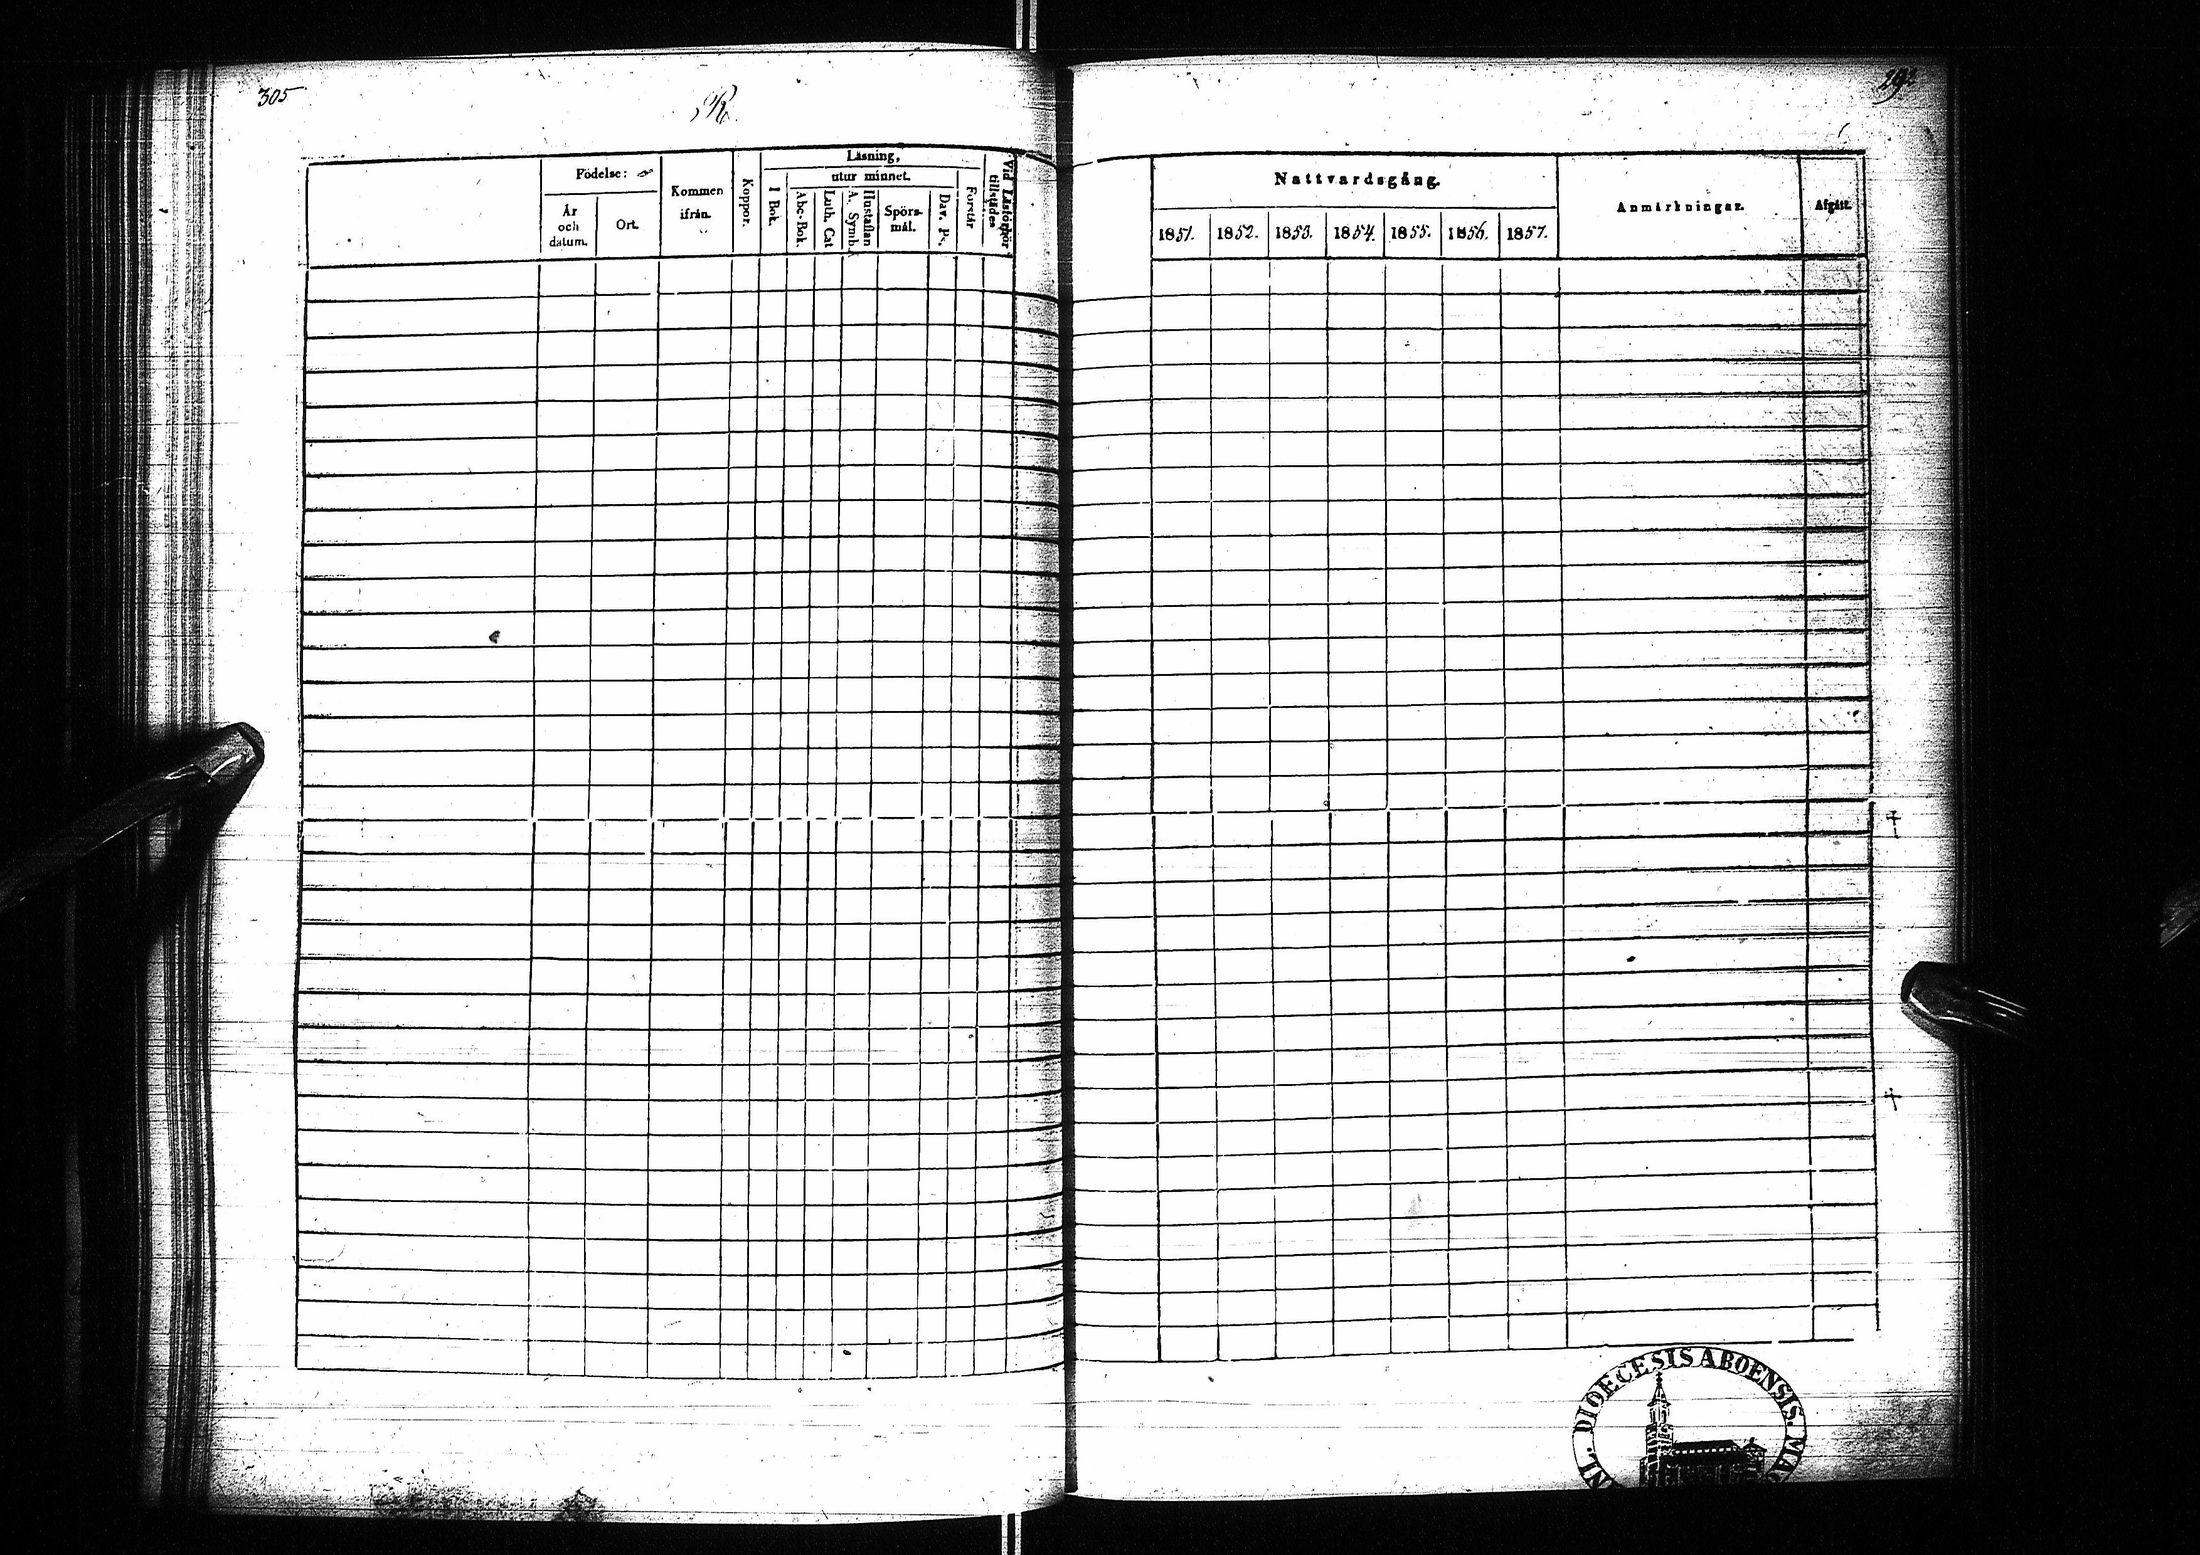 305
R.
Födelse:
År och datum.
Ort.
Kommen ifrån.
Koppor.
Läsning,
I Bok.
utur minnet.
Abc-Bok.
Luth. Cat.
Hustaflan A. Symb.
Spörs-mål.
Dav. Ps.
Förstår
Vid Läsförhör tillstädes
Nattvardsgång.
1851. 1852. 1853. 1854. 1855. 1856. 1857.
Anmärkningar.
Afgått.
DIOECESIS ABOENSIS.